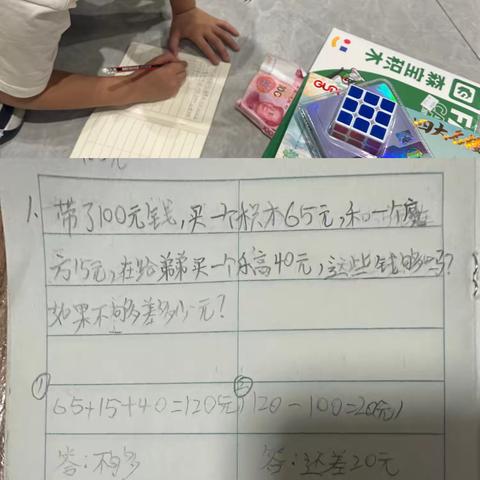 森宝积木
100
1、带了100元钱,买一个积木65元,和一个魔
方15元,在给弟弟买一个乐高40元,这些钱够吗?
如果不够差多少元?
① 65+15+40=120(元) ② 120-100=20(元)
答:不够 答:还差20元